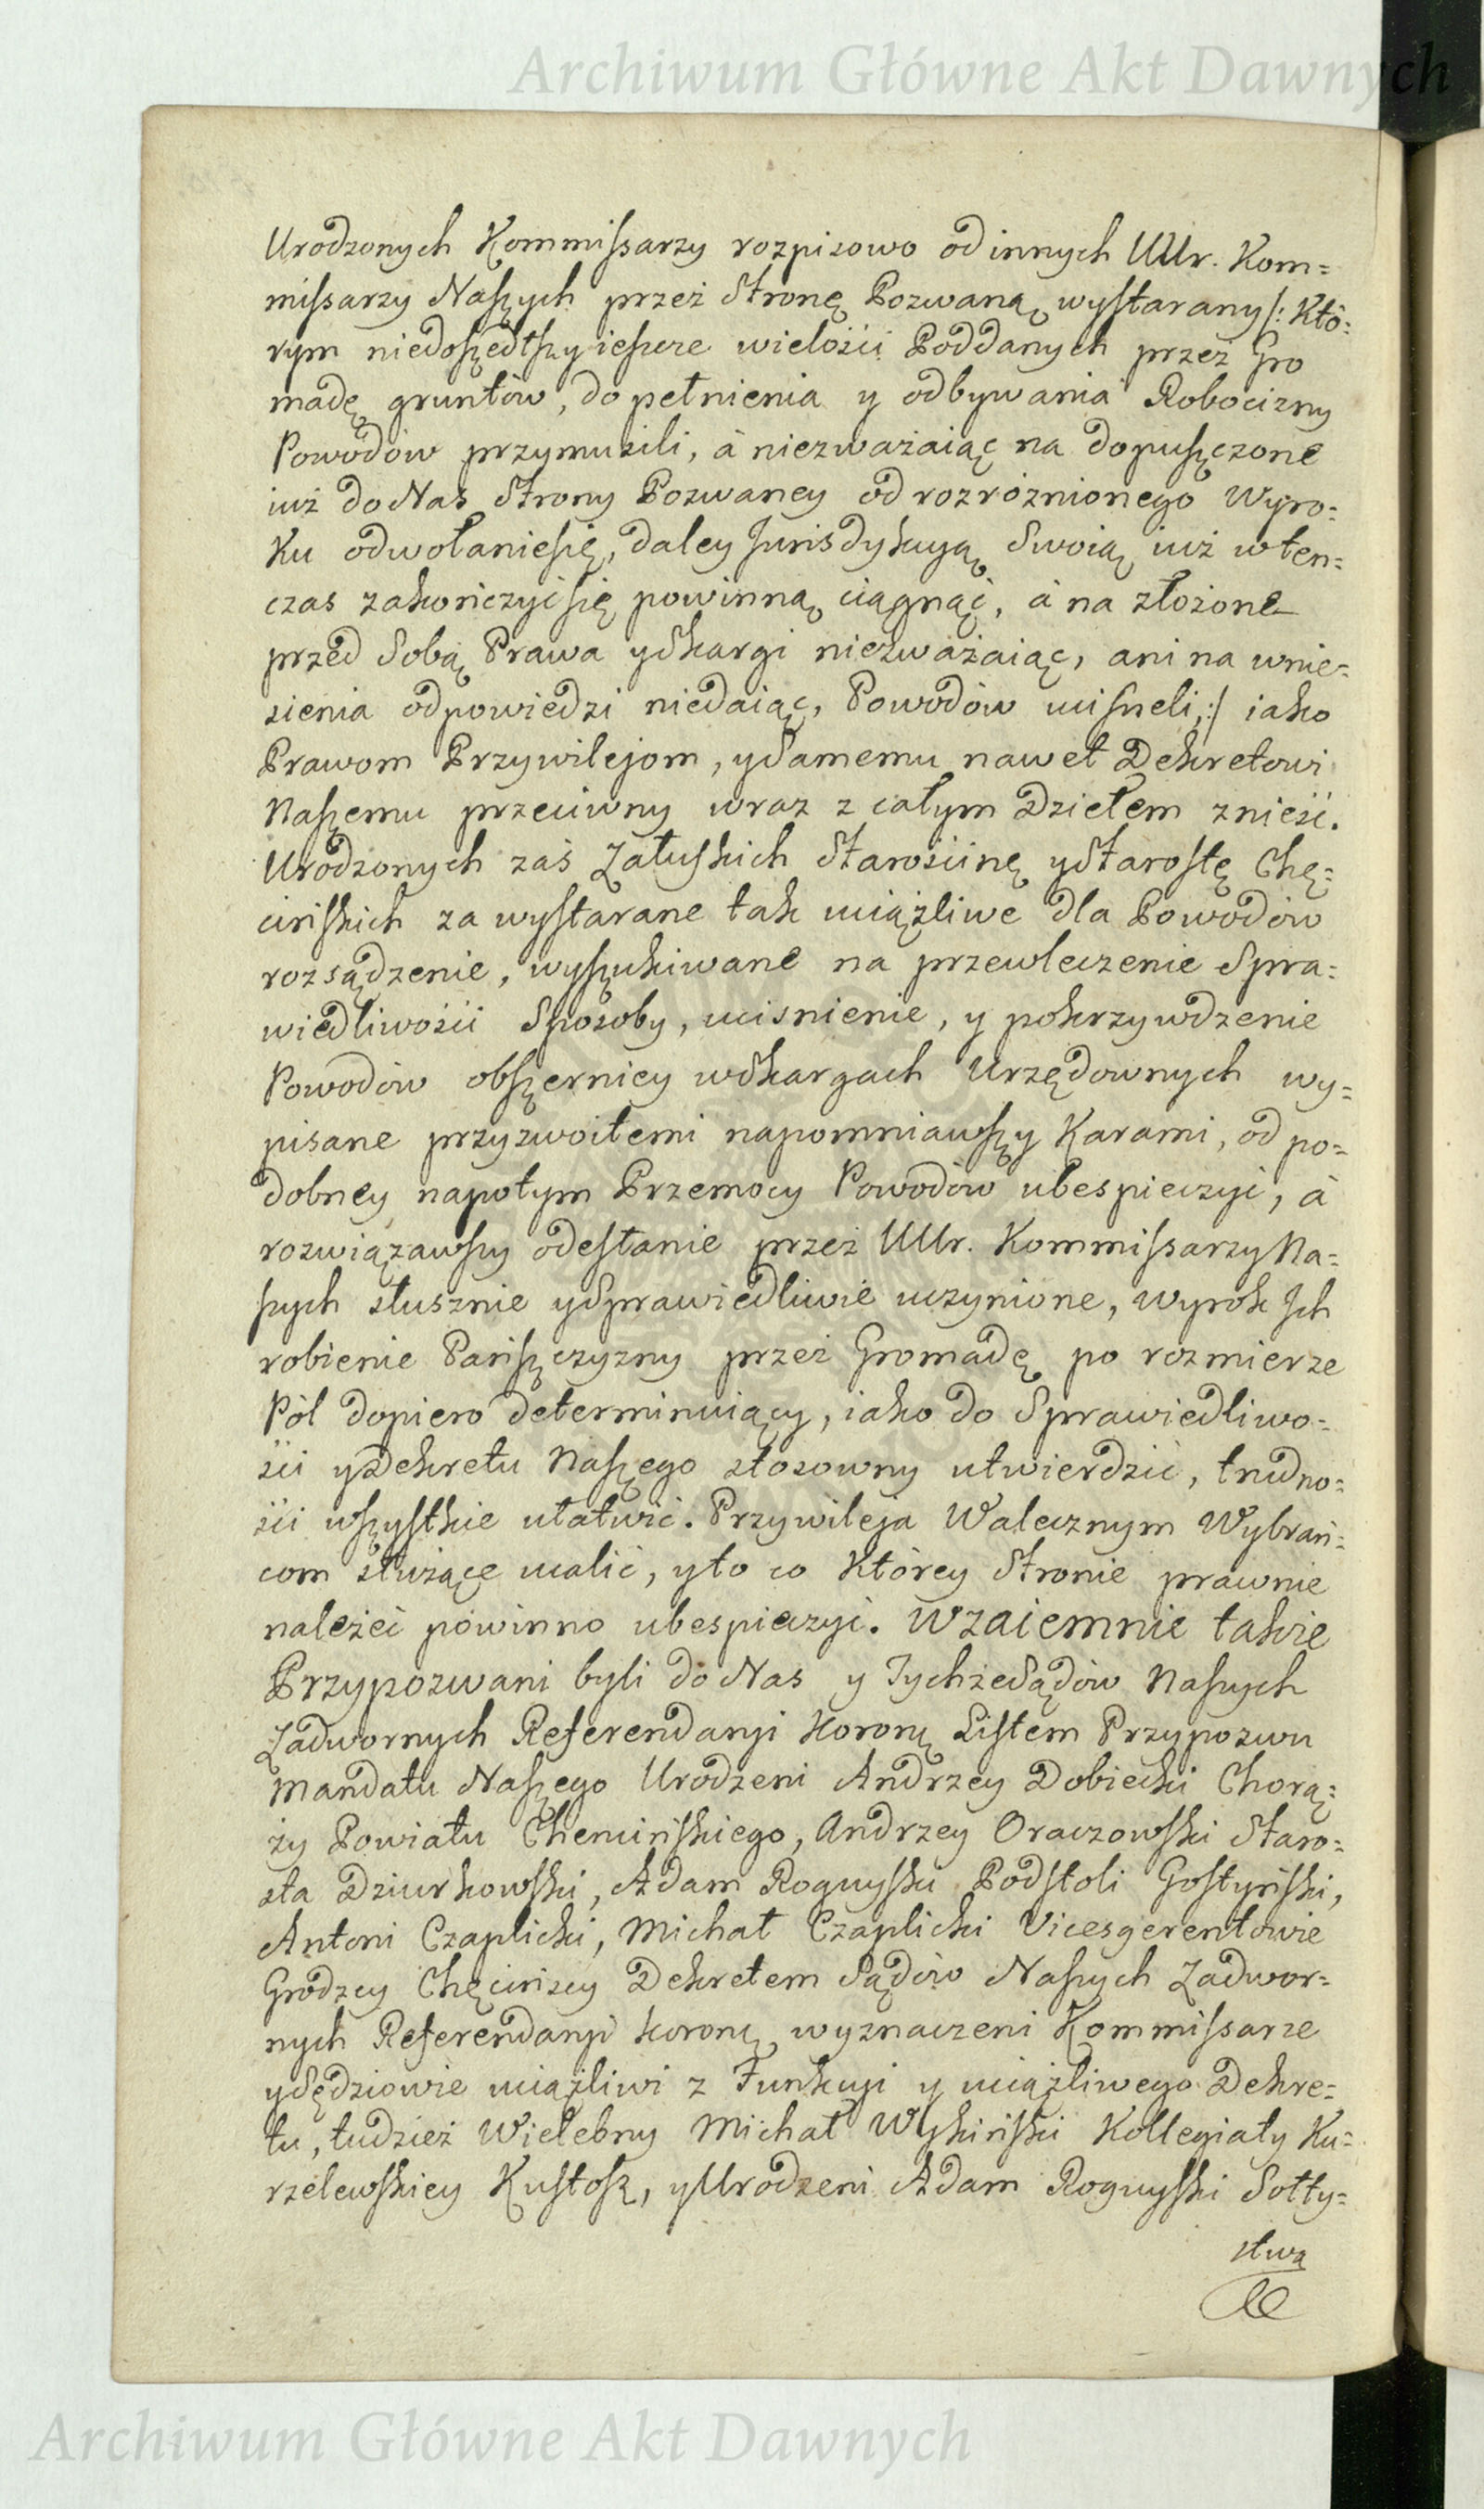 Archiwum Główne Akt Dawnych
Urodzonych Kommissarzy rozpisowo od innych UUr. Kom=
missarzy Naszych przez Stronę Pozwaną wystarany /: Któ=
rym niedoszedłszy ieszcze wielości Poddanych przez Gro
madę gruntów, do pełnienia y odbywania Robocizny
Powodów przymusili, à niezważaiąc na dopuszczone
iuż do Nas Strony Pozwaney od rozróżnionego Wyro=
ku odwołaniesię, daley Jurisdykcyą Swoią iuż wten=
czas zakończyć się powinną ciągnąć, à na złożone
przed Sobą Prawa y Skargi niezważaiąc, ani na wnie=
sienia odpowiedzi niedaiąc, Powodów ucisneli,:/ iako
Prawom Przywilejom, y Samemu nawet Dekretowi
Naszemu przeciwny wraz z całym Dziełem znieść.
Urodzonych zaś Załuskich Starościnę y Starostę Chę=
cińskich za wystarane tak uciążliwe dla Powodów
rozsądzenie, wyszukiwane na przewleczenie Spra=
wiedliwości Sposoby, ucisnienie, y pokrzywdzenie
Powodów obszerniey w Skargach Urzędownych wy=
pisane przyzwoitemi napomniawszy Karami, od po=
dobney napotym Przemocy Powodów ubespieczyć, à
rozwiązawszy odesłanie przez UUr. Kommissarzy Na=
szych słusznie y Sprawiedliwie uczynione, wyrok Ich
robienie Pańszczyzny przez Gromadę po rozmierze
Pól dopiero determinuiący, iako do Sprawiedliwo=
ści y Dekretu Naszego stosowny utwierdzić, trudno=
ści wszystkie ułatwić. Przywileja Walecznym Wybrań=
com służące ocalić, y to co Którey Stronie prawnie
należeć powinno ubespieczyć. Wzaiemnie takie
Przypozwani byli do Nas y Tychże Sądów Naszych
Zadwornych Referendaryi Koronę Listem Przypozwu
Mandatu Naszego Urodzeni Andrzey Dobiecki Chorą=
ży Powiatu Chencińskiego, Andrzey Oraczowski Staro=
sta Dziurkowski, Adam Roguyski Podstoli Gostyński,
Antoni Czaplicki, Michał Czaplicki Vicesgerentowie
Grodzcy Chęcińscy Dekretem Sądów Naszych Zadwor=
nych Referendaryi Koronę wyznaczeni Kommissarze
y Sędziowie uciążliwi z Funkcyi y uciążliwego Dekre=
tu, tudzież Wielebny Michał Kollegiaty Ku=
rzelewskiey Kustosz, y Urodzeni Adam Roguyski Sołty=
stwa
Archiwum Główne Akt Dawnych